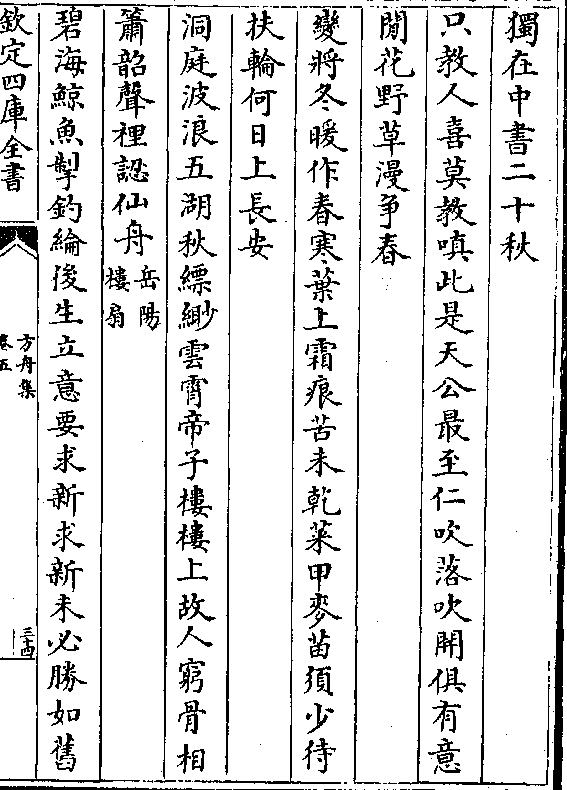 獨在中書二十秋
只教人喜莫教嗔此是天公最至仁吹落吹開俱有意
閒花野草漫爭春
變將冬暖作春寒葉上霜痕苦未乾菜甲麥苗須少待
扶輪何日上長安
洞庭波浪五湖秋縹緲雲霄帝子樓樓上故人窮骨相
簫韶聲裡認仙舟岳陽樓扇
碧海鯨魚掣釣綸後生立意要求新求新未必勝如舊
欽定四庫全書
方舟集
卷五
三十四